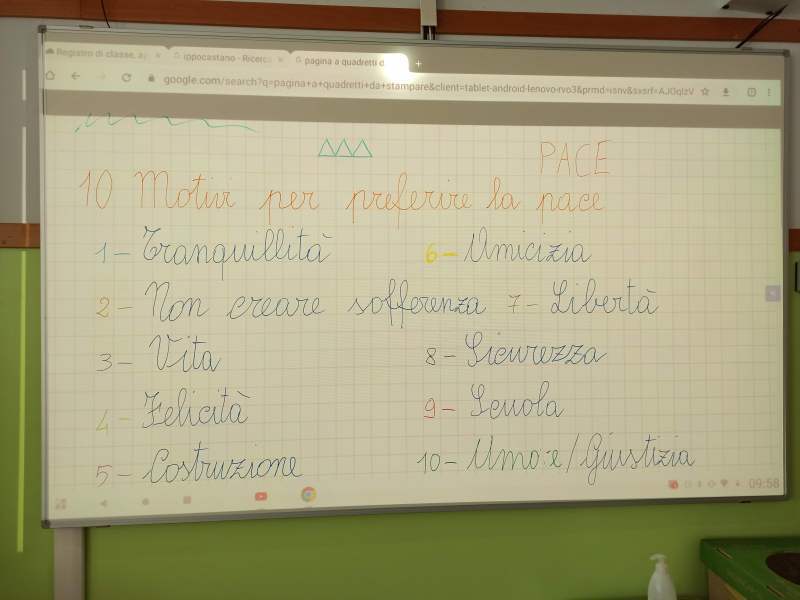 Registro di classe, ap
ippocastano - Ricerca
pagina a quadretti d
google.com/search?q=pagina+a+quadretti+da+stampare&client=tablet-android-lenovo-rvo3&prmd=isnv&sxsrf=AJOqlzV
PACE
10 Motivi per preferire la pace
1 - Tranquillità
6 - Amicizia
2 - Non creare sofferenza
7 - Libertà
3 - Vita
8 - Sicurezza
4 - Felicità
9 - Scuola
5 - Costruzione
10 - Amore/Giustizia
09:58